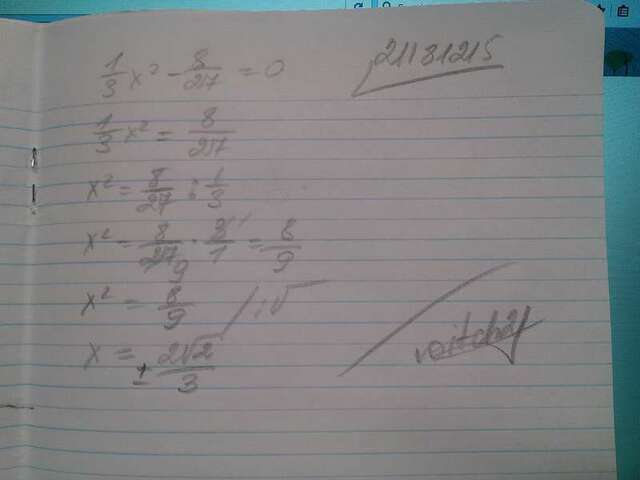 1/3 x² - 8/27 = 0
21131215
1/3 x² = 8/27
x² = 8/27 : 1/3
x² = 8/27 · 3/1 = 8/9
9
x² = 8/9 / :√
x = ± 2√2/3